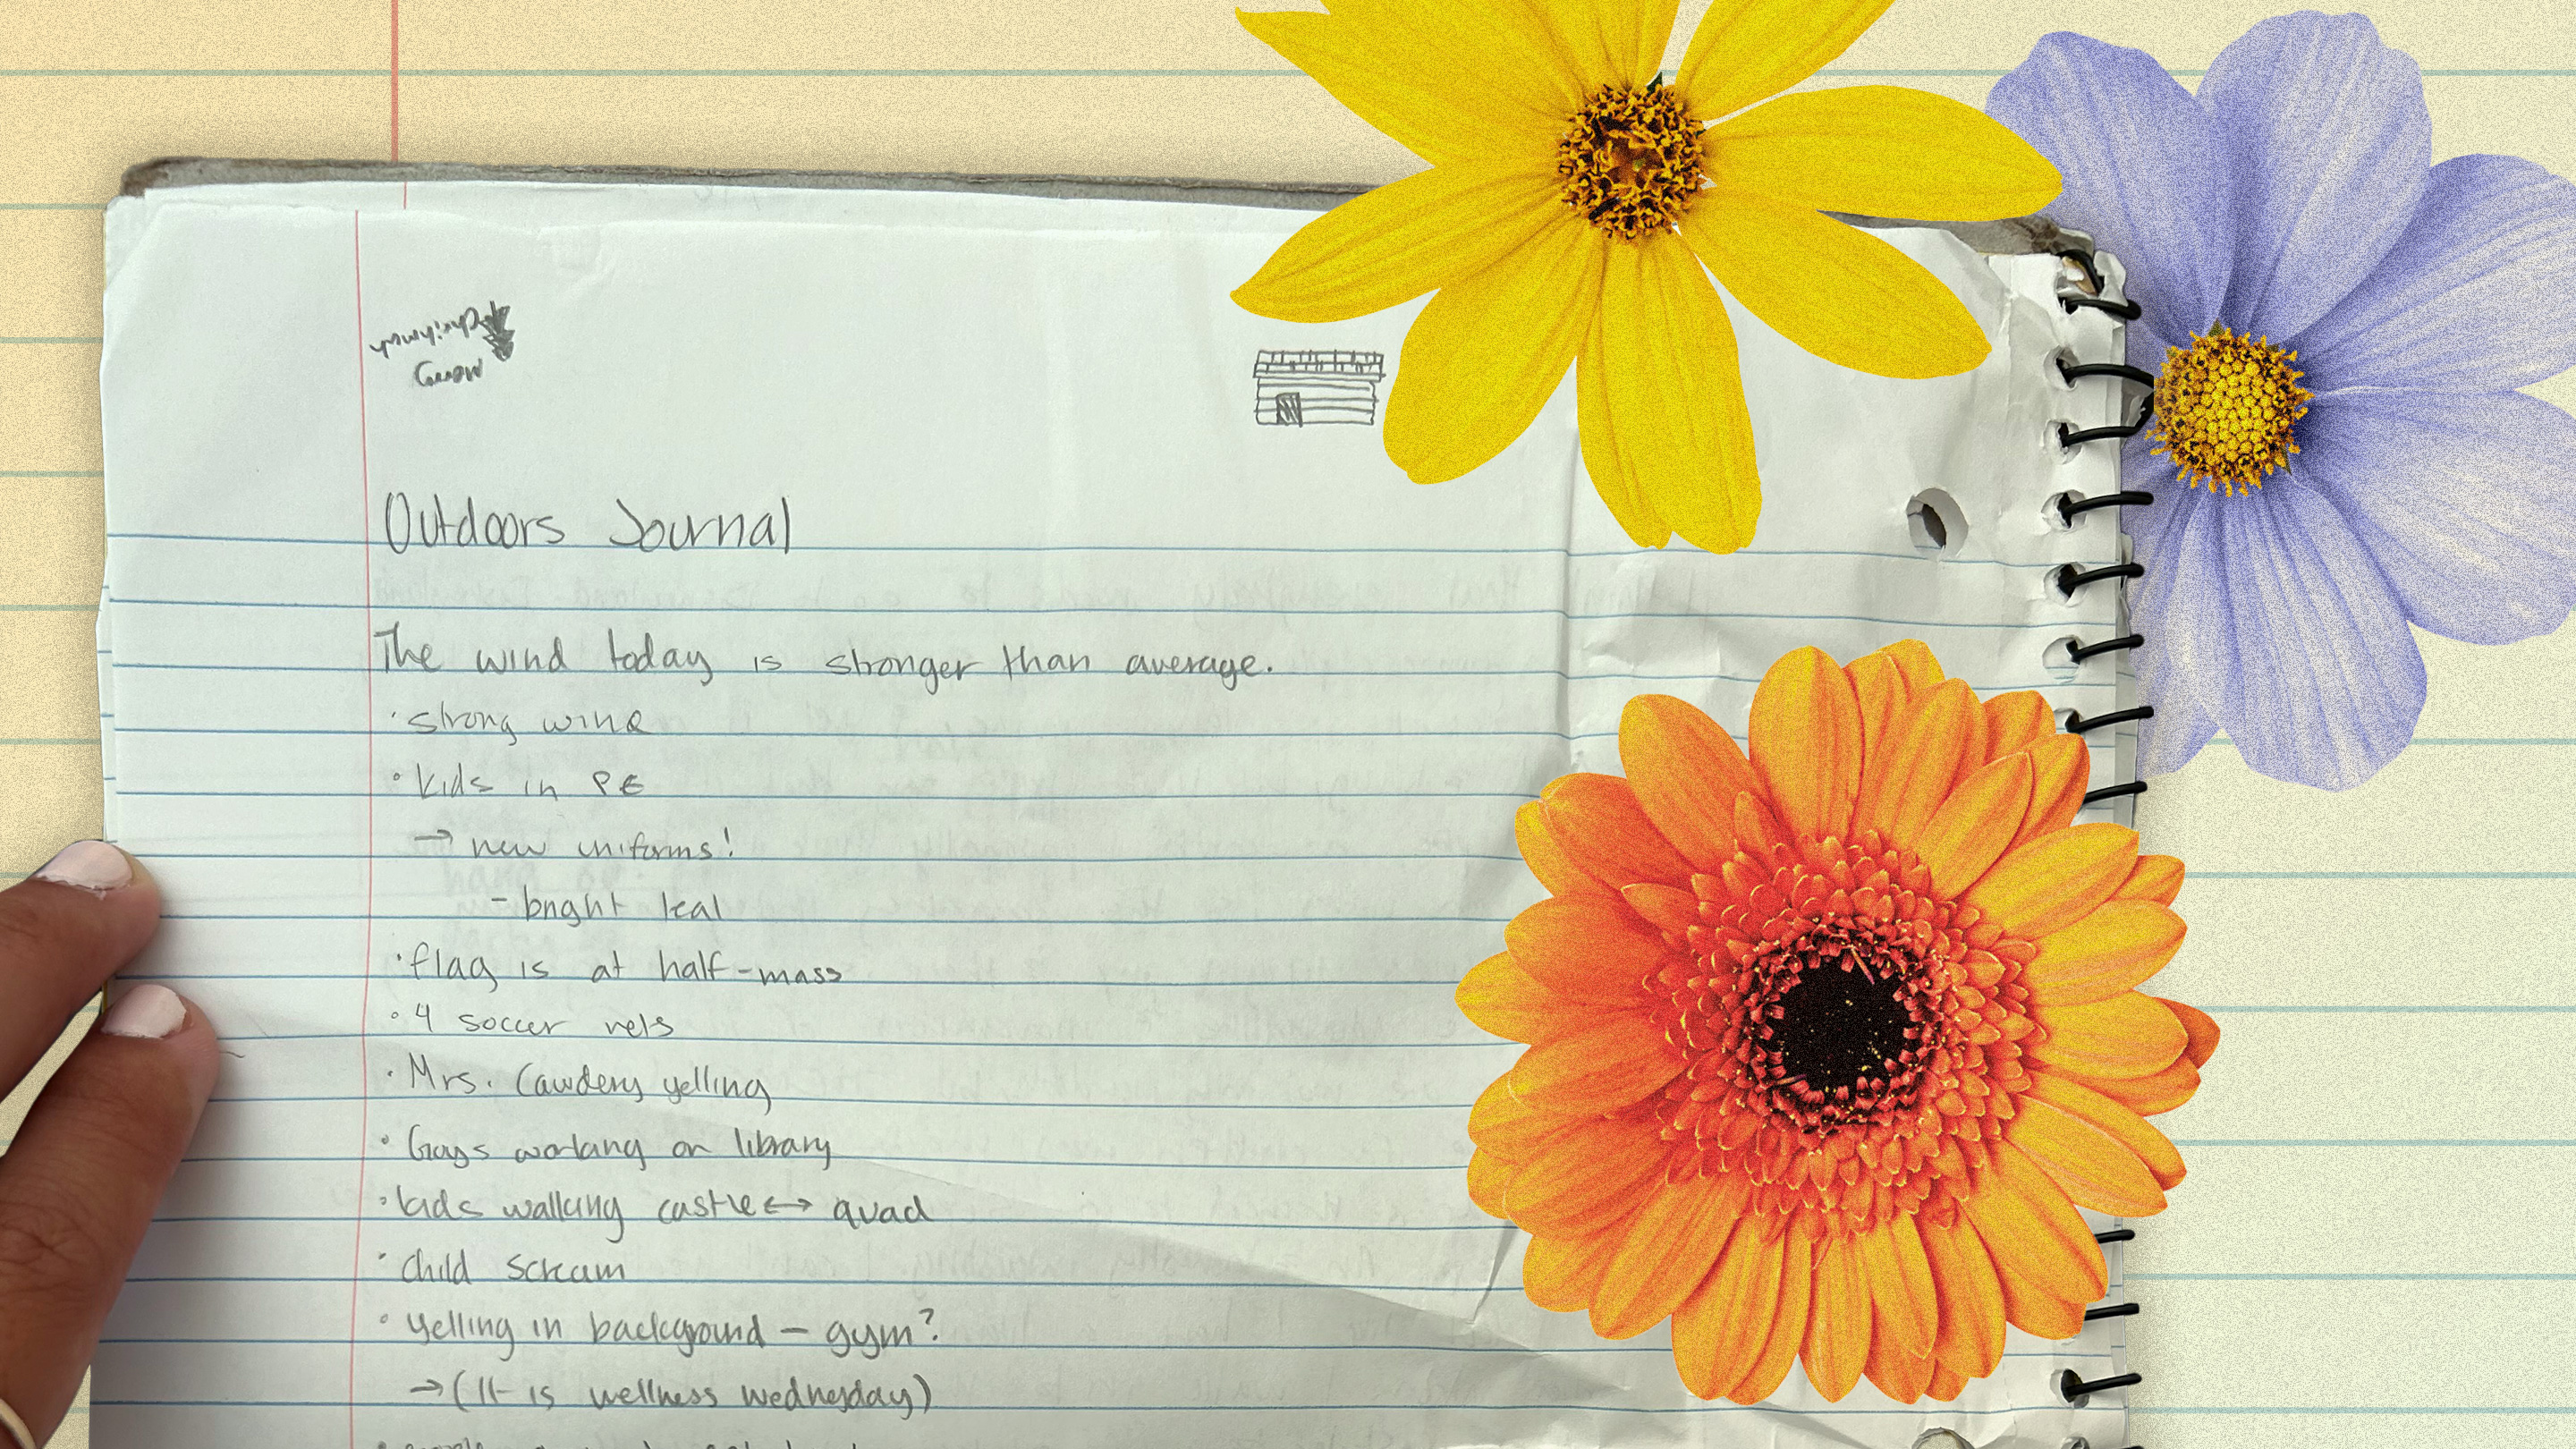 Merry
Outdoors Journal
The wind today is stronger than average.
· strong wind
· kids in PE
→ new uniforms!
- bright teal
· flag is at half-mass
· 4 soccer nets
· Mrs. Cawdery yelling
· Guys working on library
· kids walking castle ↔ quad
· child scream
· yelling in background - gym?
→ (It is wellness wednesday)